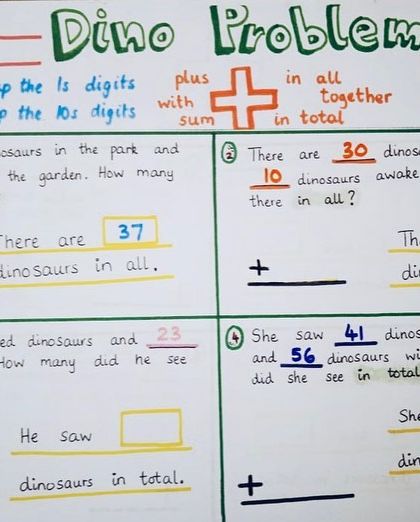 Dino Problem
the 1s digits
the 10s digits
plus
with
sum
+
in all
together
in total
in the park and
the garden. How many
There are 37
dinosaurs in all.
2 There are 30
10 dinosaurs awake
there in all?
+
dinosaurs and 23
How many did he see
He saw
dinosaurs in total.
4 She saw 41
and 56 dinosaurs
did she see in total
She
+